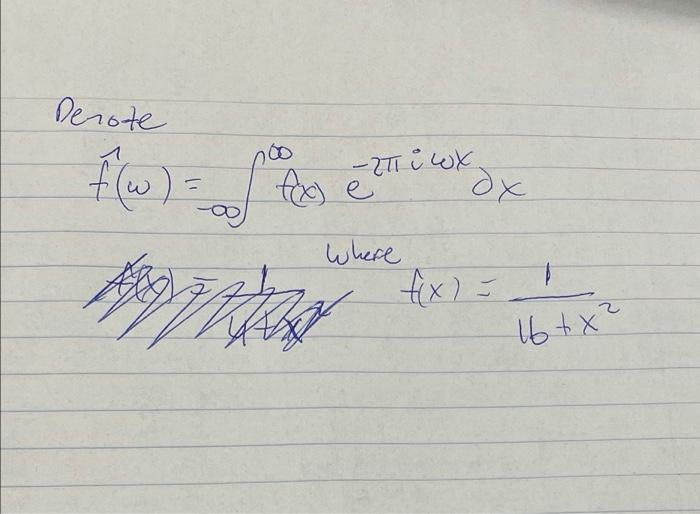 Denote
f̂(ω) = ∫_{-∞}^{∞} f(x) e^{-2πiωx} ∂x
where
f(x) = 1/(16+x²)